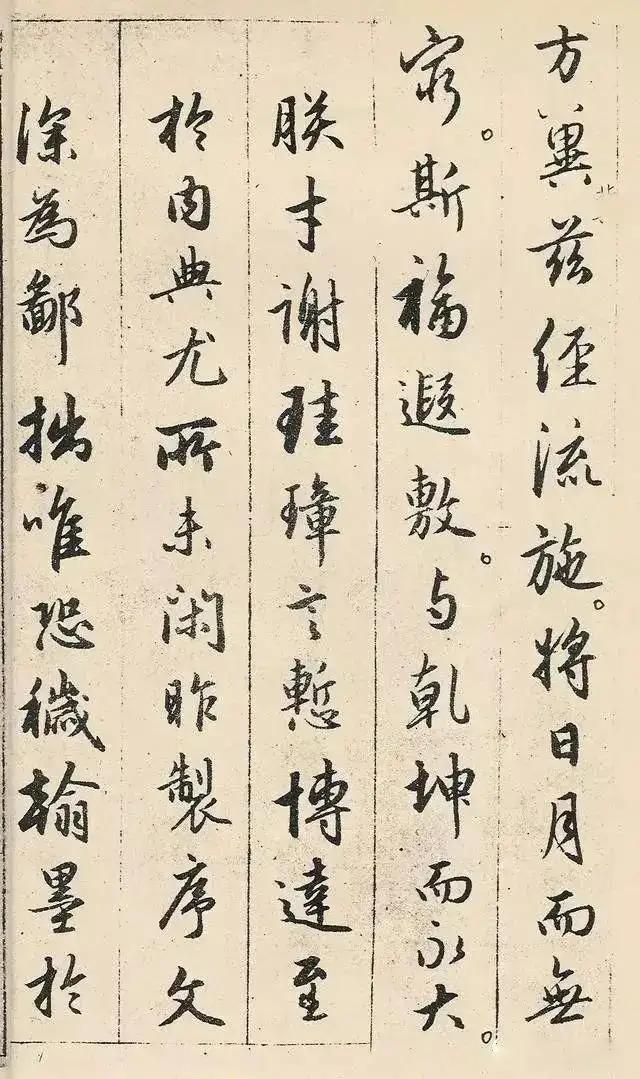 方冀茲經流施。將日月而無
窮。斯福遐敷。与乾坤而永大。
朕才謝珪璋言慙博達至
於內典尤所未閑昨製序文
深為鄙拙唯恐穢翰墨於